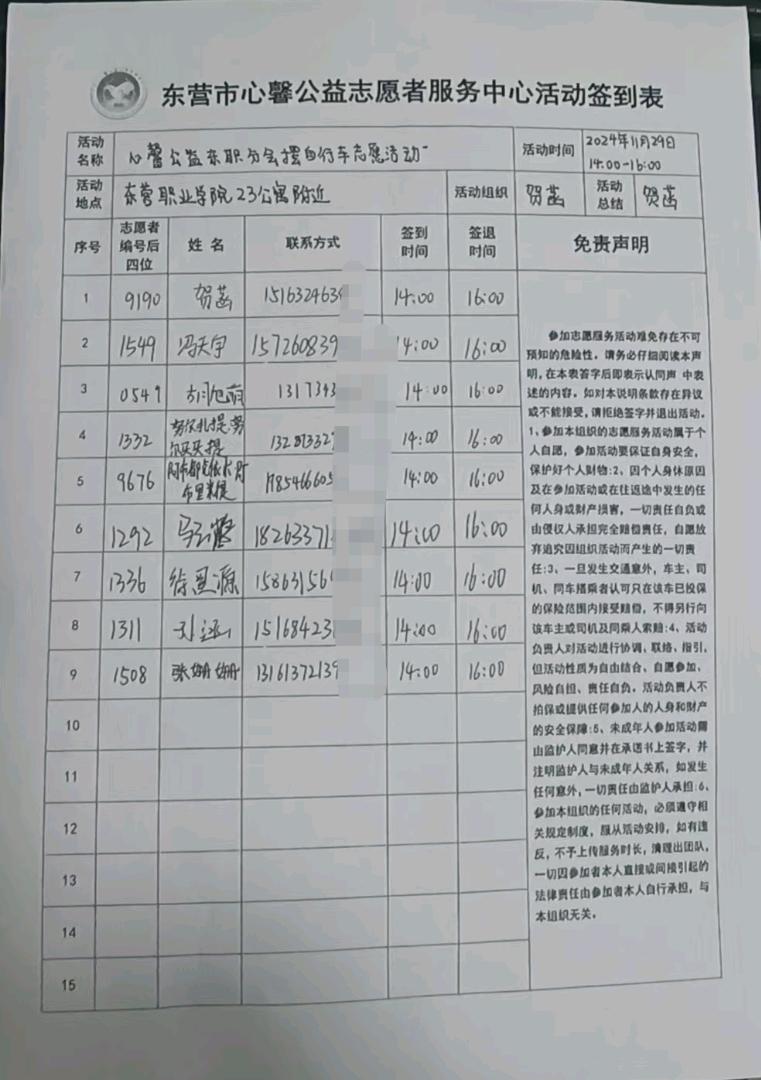 东营市心馨公益志愿者服务中心活动签到表
活动名称 心馨公益东职分会摆自行车志愿活动 活动时间 2024年11月29日 14:00-16:00
活动地点 东营职业学院23公寓附近 活动组织 贺菡 活动总结 贺菡
序号 志愿者编号后四位 姓名 联系方式 签到时间 签退时间 免责声明
1 9190 贺菡 1516324634 14:00 16:00
2 1549 冯天宇 157260839 14:00 16:00
3 0549 1317343 14:00 16:00
4 1332 14:00 16:00
5 9676 14:00 16:00
6 1292 18263371 14:00 16:00
7 1336 徐思源 15863156 14:00 16:00
8 1311 15168423 14:00 16:00
9 1508 张姗姗 13161372139 14:00 16:00
10
11
12
13
14
15
参加志愿服务活动难免存在不可
预知的危险性。请务必仔细阅读本声
明,在本表签字后即表示认同声 中表
述的内容。如对本说明条款存在异议
或不能接受,请拒绝签字并退出活动。
1、参加本组织的志愿服务活动属于个
人自愿,参加活动要保证自身安全,
保护好个人财物:2、因个人身体原因
及在参加活动或在往返途中发生的任
何人身或财产损害,一切责任自负或
由侵权人承担完全赔偿责任,自愿放
弃追究因组织活动而产生的一切责
任:3、一旦发生交通意外,车主、司
机、同车搭乘者认可只在该车已投保
的保险范围内接受赔偿,不得另行向
该车主或司机及同乘人索赔:4、活动
负责人对活动进行协调、联络、指引,
但活动性质为自由结合、自愿参加、
风险自担、责任自负。活动负责人不
担保或提供任何参加人的人身和财产
的安全保障:5、未成年人参加活动需
由监护人同意并在承诺书上签字,并
注明监护人与未成年人关系,如发生
任何意外,一切责任由监护人承担:6、
参加本组织的任何活动,必须遵守相
关规定制度,服从活动安排,如有违
反,不予上传服务时长,清理出团队,
一切因参加者本人直接或间接引起的
法律责任由参加者本人自行承担,与
本组织无关。